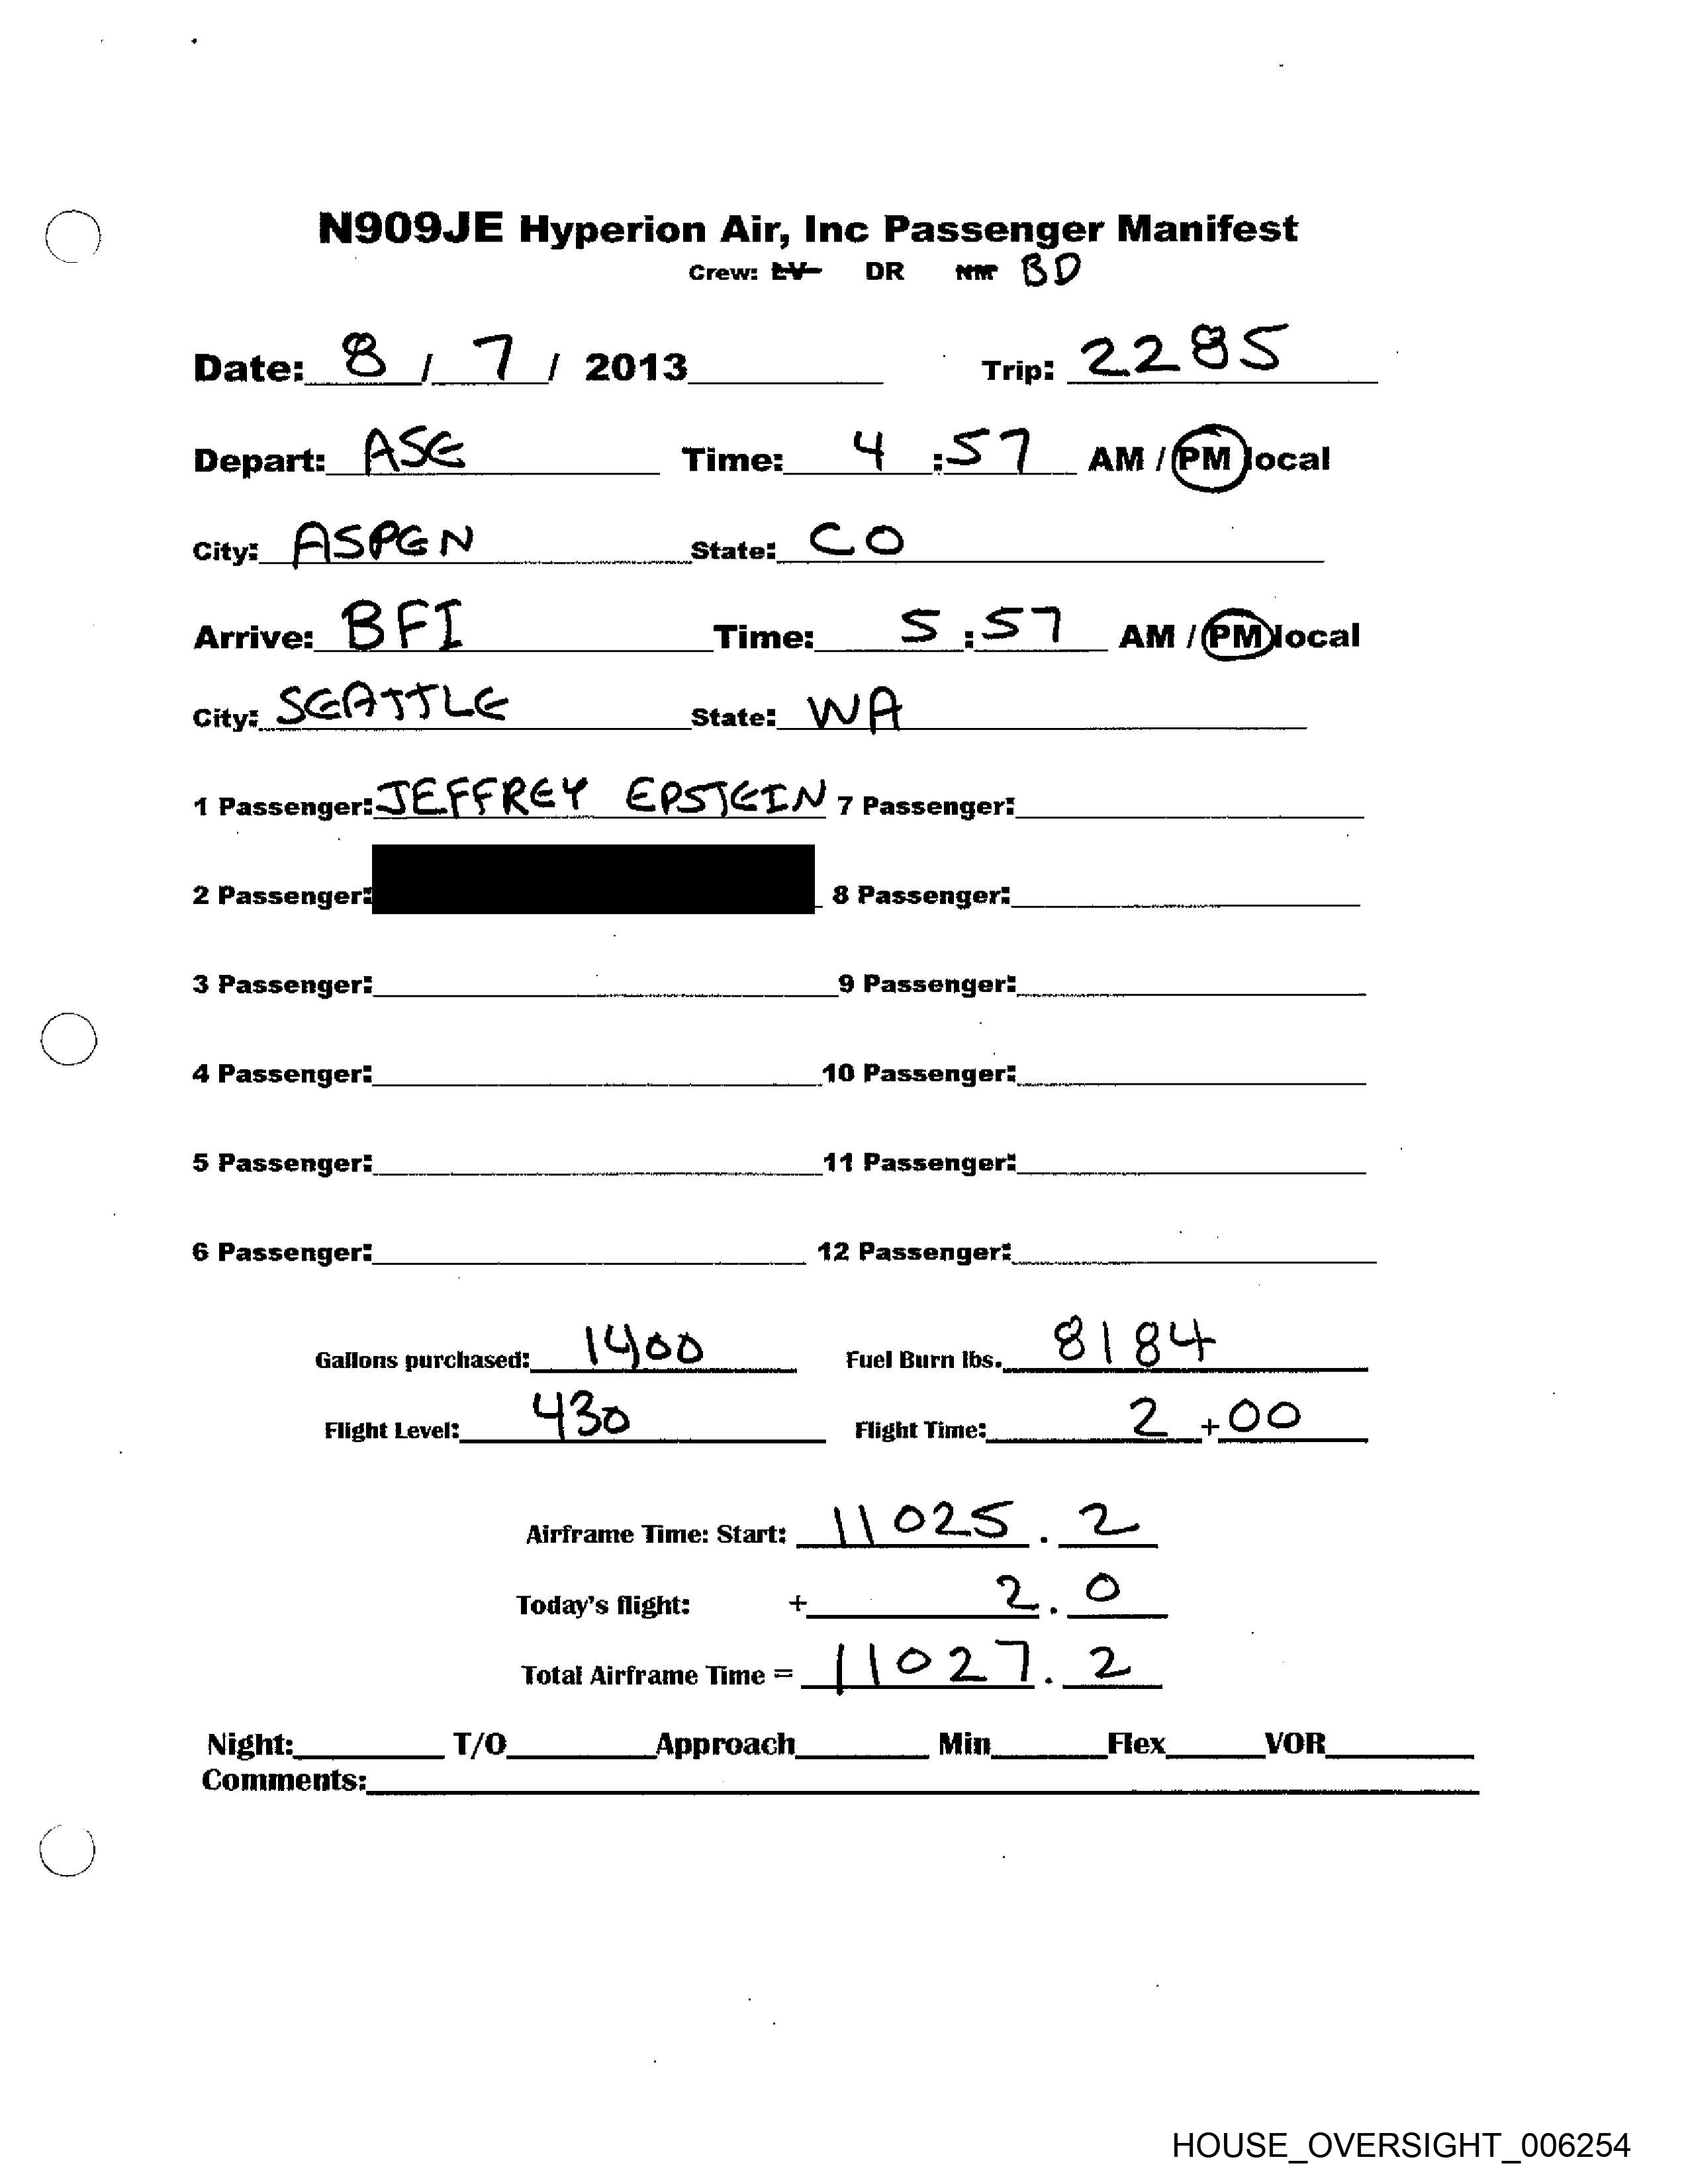 N909JE Hyperion Air, Inc Passenger Manifest
Crew: LV DR NM BD
Date: 8 / 7 / 2013 Trip: 2285
Depart: ASE Time: 4 : 57 AM / PM local
City: ASPEN State: CO
Arrive: BFI Time: 5 : 57 AM / PM local
City: SEATTLE State: WA
1 Passenger: JEFFREY EPSTEIN 7 Passenger:
2 Passenger: 8 Passenger:
3 Passenger: 9 Passenger:
4 Passenger: 10 Passenger:
5 Passenger: 11 Passenger:
6 Passenger: 12 Passenger:
Gallons purchased: 1400 Fuel Burn lbs. 8184
Flight Level: 430 Flight Time: 2 + 00
Airframe Time: Start: 11025 . 2
Today's flight: + 2 . 0
Total Airframe Time = 11027 . 2
Night: T/O Approach Min Flex VOR
Comments:
HOUSE_OVERSIGHT_006254